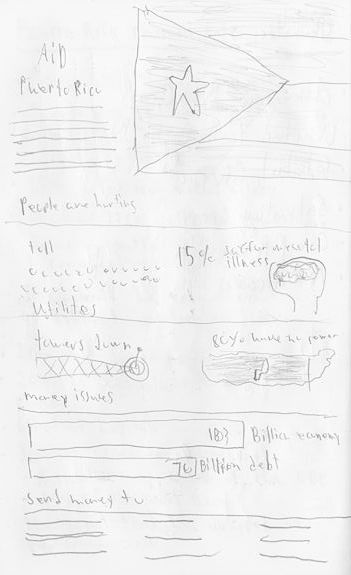 AiD
Puerto Rico
People are hurting
toll
15% suffer mental
illness
Utilites
towers down
80% have no power
money issues
103 Billion economy
70 Billion debt
Send money to